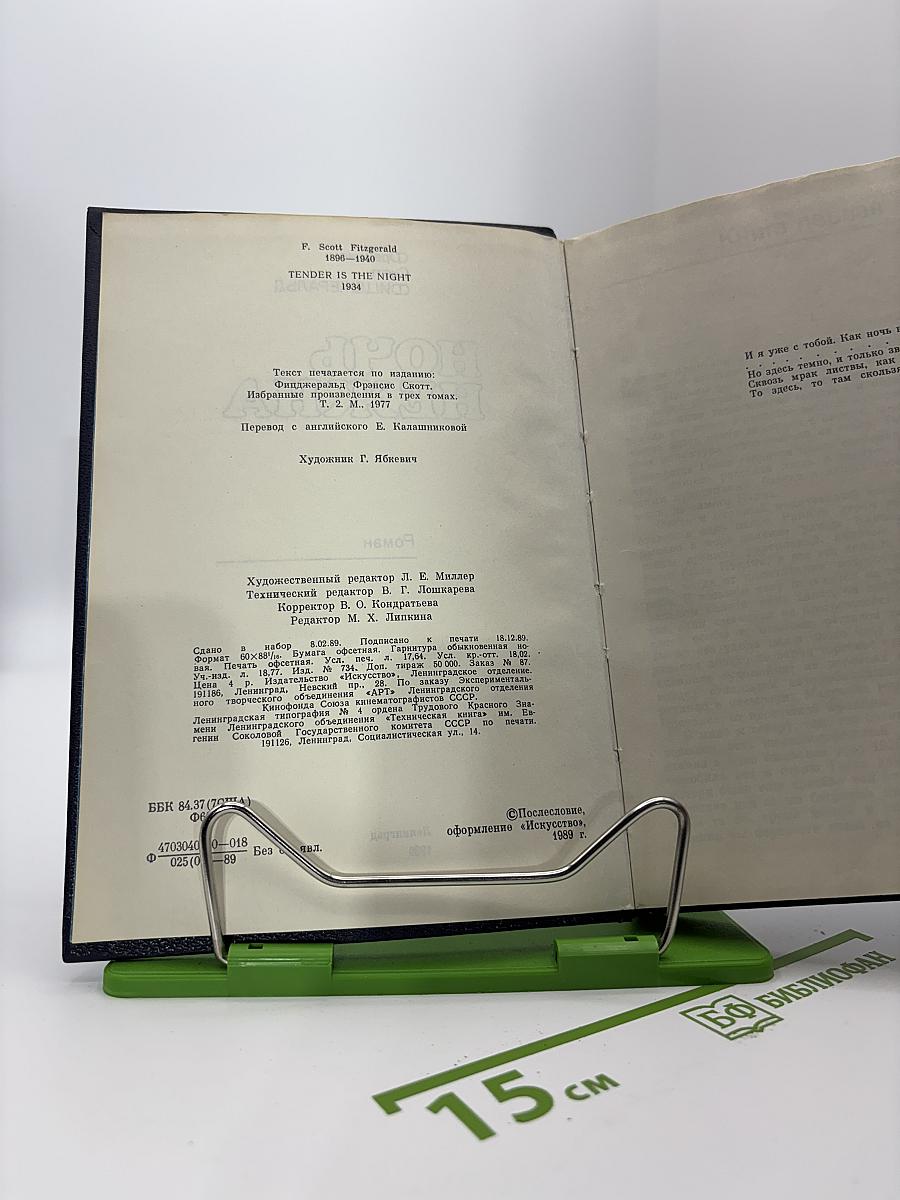 F. Scott Fitzgerald
1896—1940
TENDER IS THE NIGHT
1934
Текст печатается по изданию:
Фицджеральд Фрэнсис Скотт.
Избранные произведения в трех томах.
Т. 2. М., 1977
Перевод с английского Е. Калашниковой
Художник Г. Ябкевич
Роман
Художественный редактор Л. Е. Миллер
Технический редактор В. Г. Лошкарева
Корректор В. О. Кондратьева
Редактор М. Х. Липкина
Сдано в набор 8.02.89. Подписано к печати 18.12.89.
Формат 60×88¹/₁₆. Бумага офсетная. Гарнитура обыкновенная но-
вая. Печать офсетная. Усл. печ. л. 17,64. Усл. кр.-отт. 18,02.
Уч.-изд. л. 18,77. Изд. № 734. Доп. тираж 50 000. Заказ № 87.
Цена 4 р. Издательство «Искусство», Ленинградское отделение.
191186, Ленинград, Невский пр., 28. По заказу Эксперименталь-
ного творческого объединения «АРТ» Ленинградского отделения
Кинофонда Союза кинематографистов СССР.
Ленинградская типография № 4 ордена Трудового Красного Зна-
мени Ленинградского объединения «Техническая книга» им. Ев-
гении Соколовой Государственного комитета СССР по печати.
191126, Ленинград, Социалистическая ул., 14.
ББК 84.37(7США)
©Послесловие,
оформление «Искусство»,
1989 г.
Ф
Без
явл.
И я уже с тобой. Как ночь
. . . . . . . . . .
Но здесь темно, и только
Сквозь мрак листвы, как
То здесь, то там
БФ БИБЛИОФАН
15 см